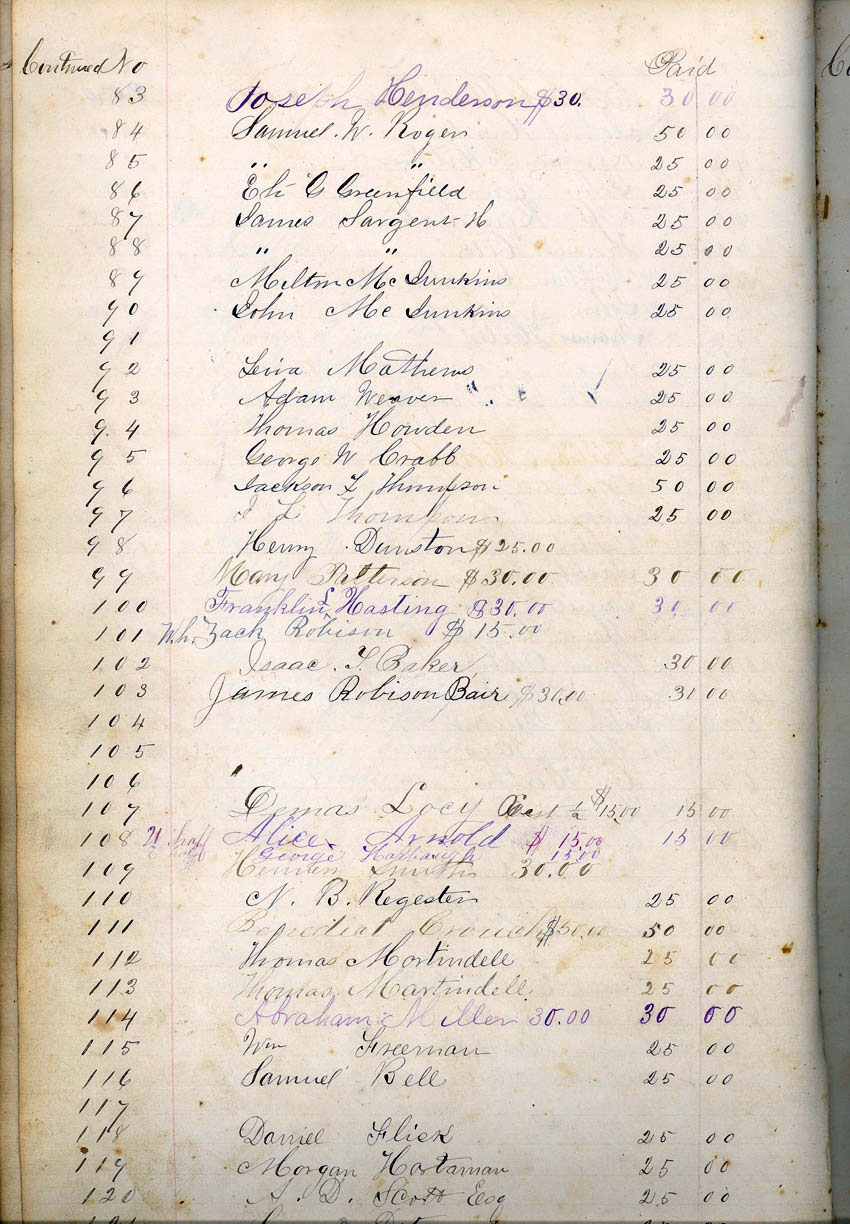 Continued No Paid
83 Joseph Henderson $30. 30 00
84 Samuel W. Roger 50 00
85 " " 25 00
86 Eli G Greenfield 25 00
87 James Sargent H 25 00
88 " " 25 00
89 Milton Mc Junkins 25 00
90 John Mc Junkins 25 00
91
92 Mathews 25 00
93 Adam Weaver " " 25 00
94 Thomas Howden 25 00
95 George W Crabb 25 00
96 Jackson L Thompson 50 00
97 J L Thompson 25 00
98 Henry Dunston $25.00
99 Mary Patterson $30.00 30 00
100 Franklin L Hasting $30.00 30 00
101 W.h. Zack Robison $15.00
102 Isaac T. Baker 30 00
103 James Robison Bair $30.00 30 00
104
105
106
107 Demas Locy West 1/2 $15.00 15 00
108 N half Alice Arnold $15.00 15 00
half George Harbaugh 15.00
109 Smith 30.00
110 N. B. Regester 25 00
111 Crouch $50.00 50 00
112 Thomas Mortindell 25 00
113 Thomas Martindell 25 00
114 Abraham Miller 30.00 30 00
115 Wm Freeman 25 00
116 Samuel Bell 25 00
117
118 Daniel Flick 25 00
119 Morgan Hartaman 25 00
120 A. D. Scott Esq 25 00
121